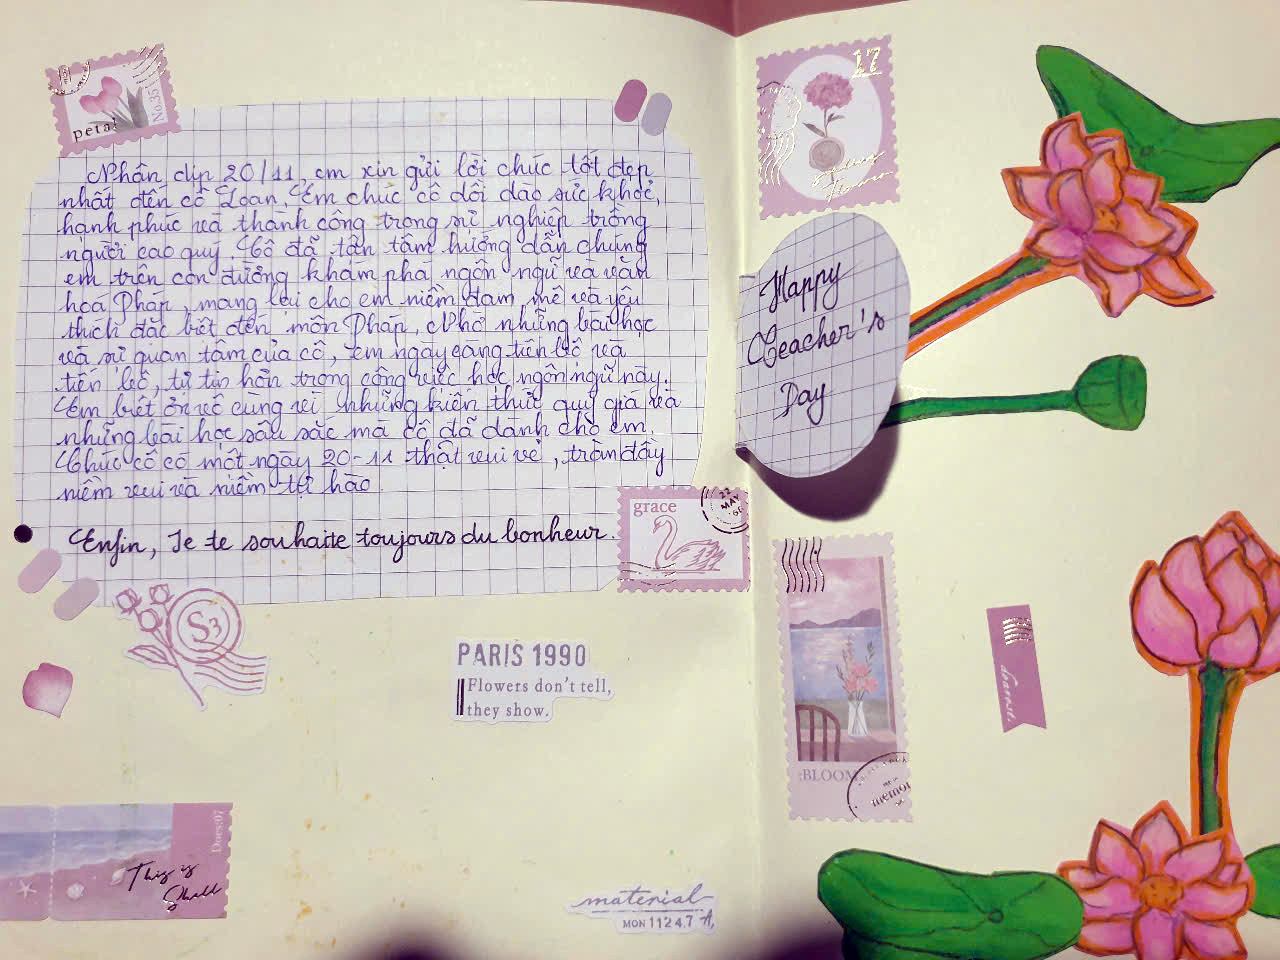 petal
No.35
Nhân dịp 20/11, em xin gửi lời chúc tốt đẹp
nhất đến cô Loan. Em chúc cô dồi dào sức khỏe,
hạnh phúc và thành công trong sự nghiệp trồng
người cao quý. Cô đã tận tâm hướng dẫn chúng
em trên con đường khám phá ngôn ngữ và văn
hoá Pháp, mang lại cho em niềm đam mê và yêu
thích đặc biệt đến môn Pháp. Nhờ những bài học
và sự quan tâm của cô, em ngày càng tiến bộ và
tiến bộ, tự tin hơn trong công việc học ngôn ngữ này.
Em biết ơn vô cùng vì những kiến thức quý giá và
những bài học sâu sắc mà cô đã dành cho em.
Chúc cô có một ngày 20-11 thật vui vẻ, tràn đầy
niềm vui và niềm tự hào
Enfin, Je te souhaite toujours du bonheur.
grace
22
MAY
S3
PARIS 1990
Flowers don't tell,
they show.
Does:07
This is
Shell
material
MON 1124.7
17
Happy
Teacher's
Day
:BLOOM
memor